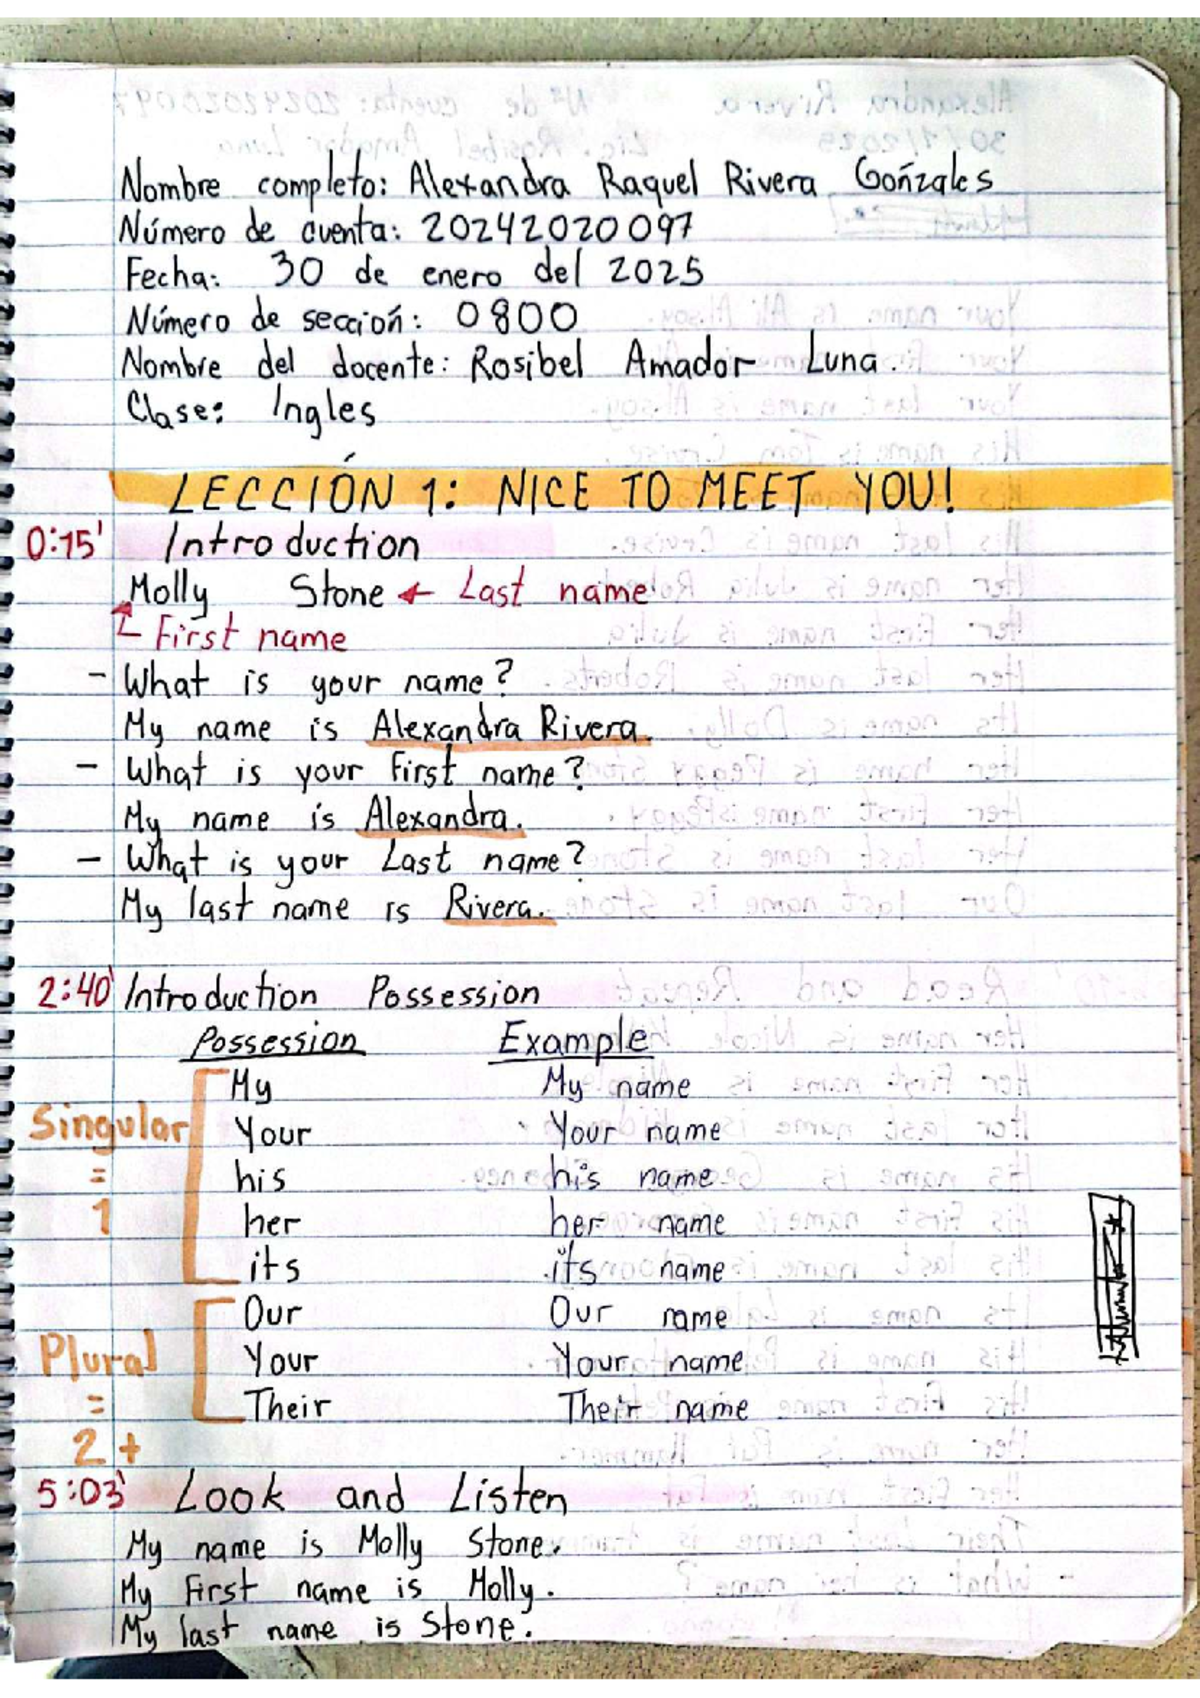 Nombre completo: Alexandra Raquel Rivera Goñzales
Número de cuenta: 20242020097
Fecha: 30 de enero del 2025
Número de sección: 0800
Nombre del docente: Rosibel Amador Luna.
Clase: Ingles
LECCIÓN 1: NICE TO MEET YOU!
0:15' Introduction
Molly Stone ← Last name
First name
- What is your name?
My name is Alexandra Rivera.
- What is your first name?
My name is Alexandra.
- What is your Last name?
My last name is Rivera.
2:40' Introduction Possession
Possession Example
My My name
Singular Your Your name
= his his name
1 her her name
its its name
Our Our name
Plural Your Your name
= Their Their name
2 +
5:03' Look and Listen
My name is Molly Stone.
My First name is Molly.
My last name is Stone.